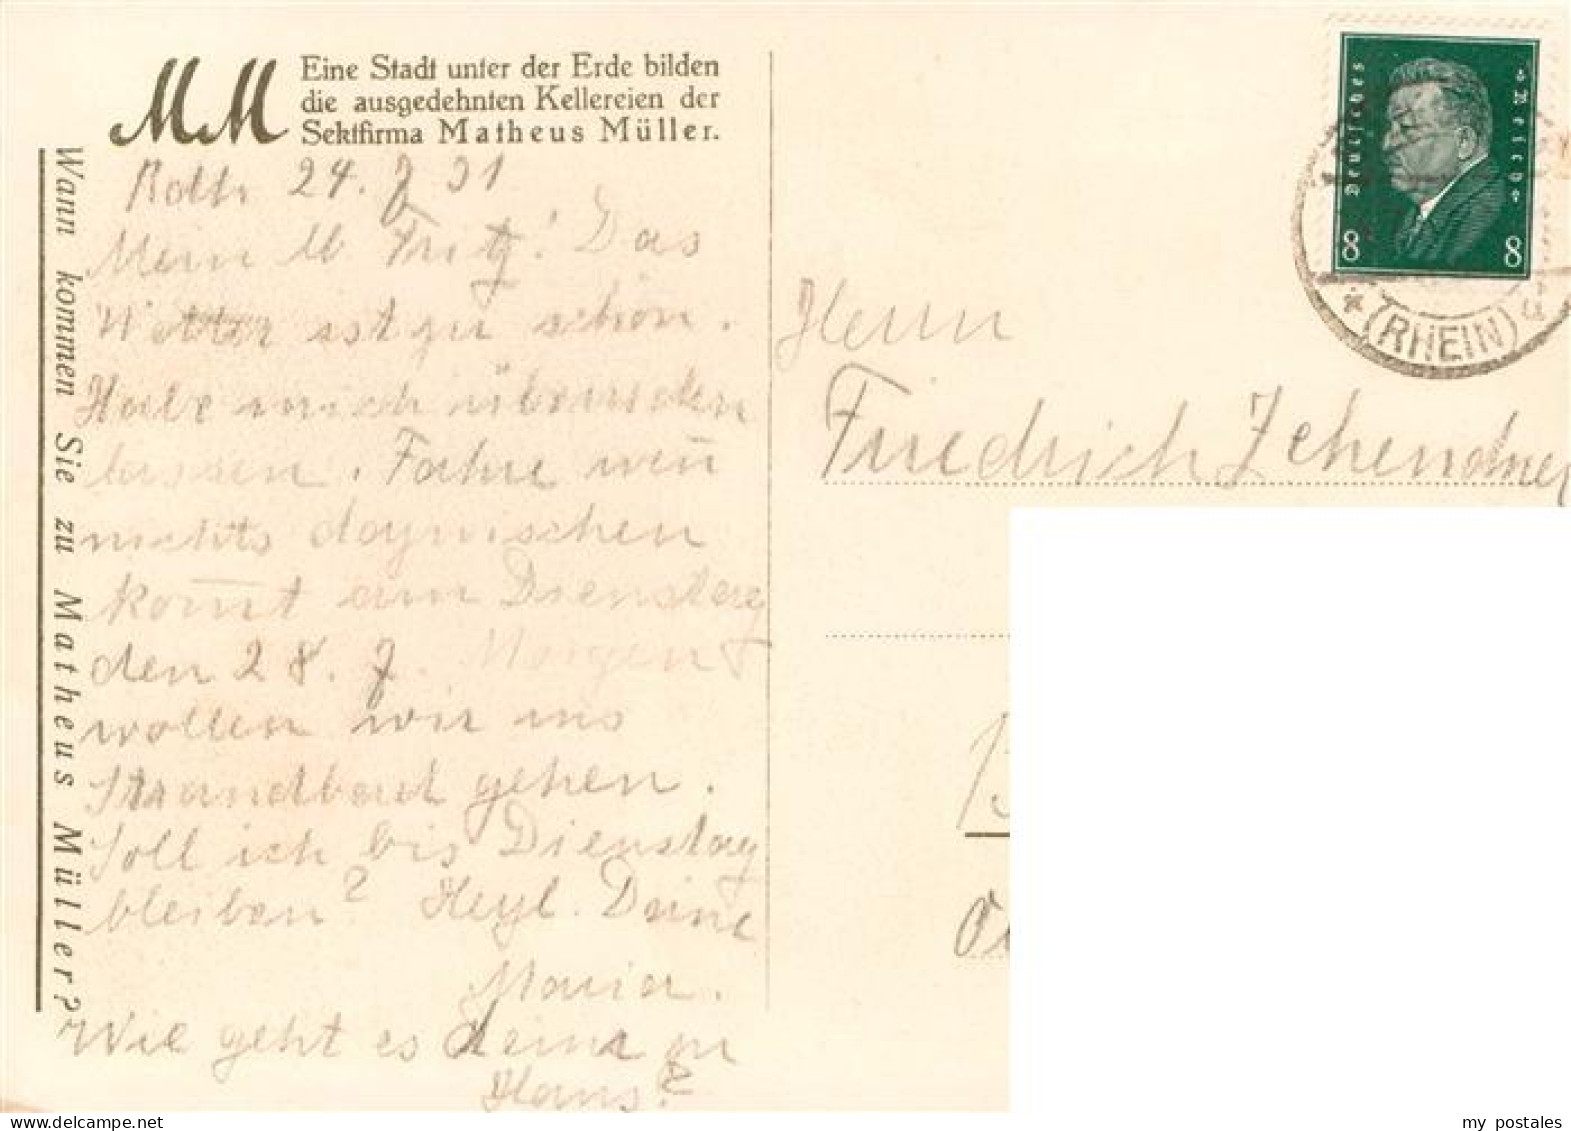 MM
Eine Stadt unter der Erde bilden
die ausgedehnten Kellereien der
Sektfirma Matheus Müller.
Wann kommen Sie zu Matheus Müller?
24. 7 31
Mein lb Fritz! Das
Wetter ist zu schön.
Habe mich überreden
lassen. Fahre wenn̄
nichts dazwischen
kom̄t am Dienstag
den 28. 7. Morgen
wollen wir ins
Strandbad gehen.
Soll ich bis Dienstag
bleiben? Herzl. Deine
Maria.
Wie geht es
Hans?
Herrn
Friedrich
Deutsches Reich
8 8
(RHEIN)
my postales